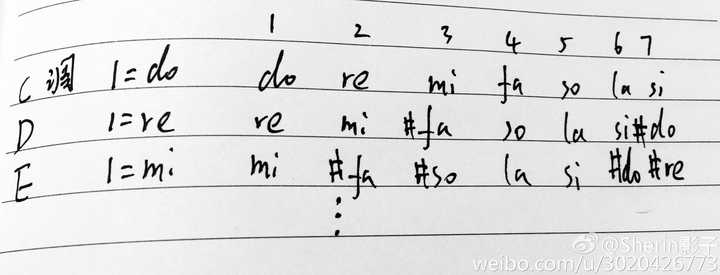 1 2 3 4 5 6 7
C调 1=do do re mi fa so la si
D 1=re re mi #fa so la si #do
E 1=mi mi #fa #so la si #do #re
⋮
@Sherin影子
weibo.com/u/3020426773